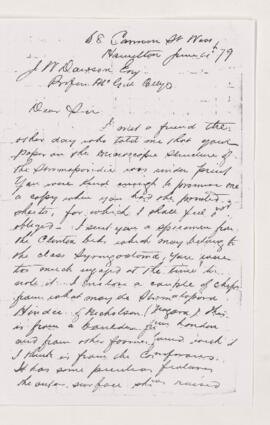 68 Cannon St West
Hamilton June 4th 79
J W Dawson Esq
McGill
Dear Sir
I met a friend the
other day who told me that your
paper on the Microscopic Structure of
the Stromatoporidae was under print
You were kind enough to promise me
a copy when you had the printed
sheets, for which I shall feel
obliged. I sent you a specimen from
the Clinton beds which may belong to
the class, You were
too much engaged at the time
I enclose a couple of chips
from what may be Stromatopora
Hindei of Nicholson (Niagara) This
is from a London
and from other forms found with it
I think is from the Corniferous.
It has some peculiar features
the outer surface raised